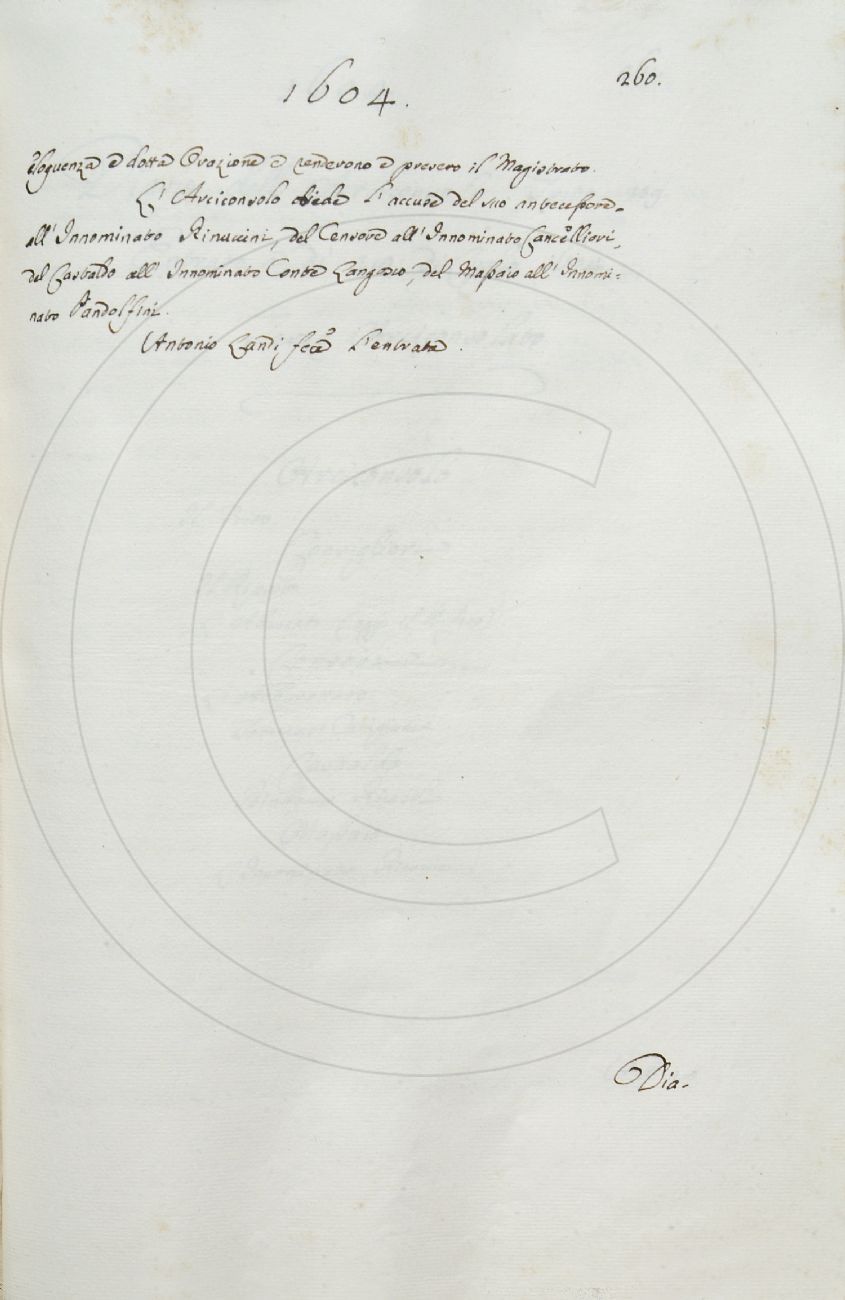 1604.
260.
eloquenza e dotta Orazione e renderono e presero il Magistrato.
L'Arciconsolo diede l'accuse del suo antecessore
all'Innominato Rinuccini, del Censore all'Innominato Cancellieri,
del Castaldo all'Innominato Conte Langosco, del Massaio all'Innomi-
nato Pandolfini.
Antonio Landi fece l'entrata.
Dia-